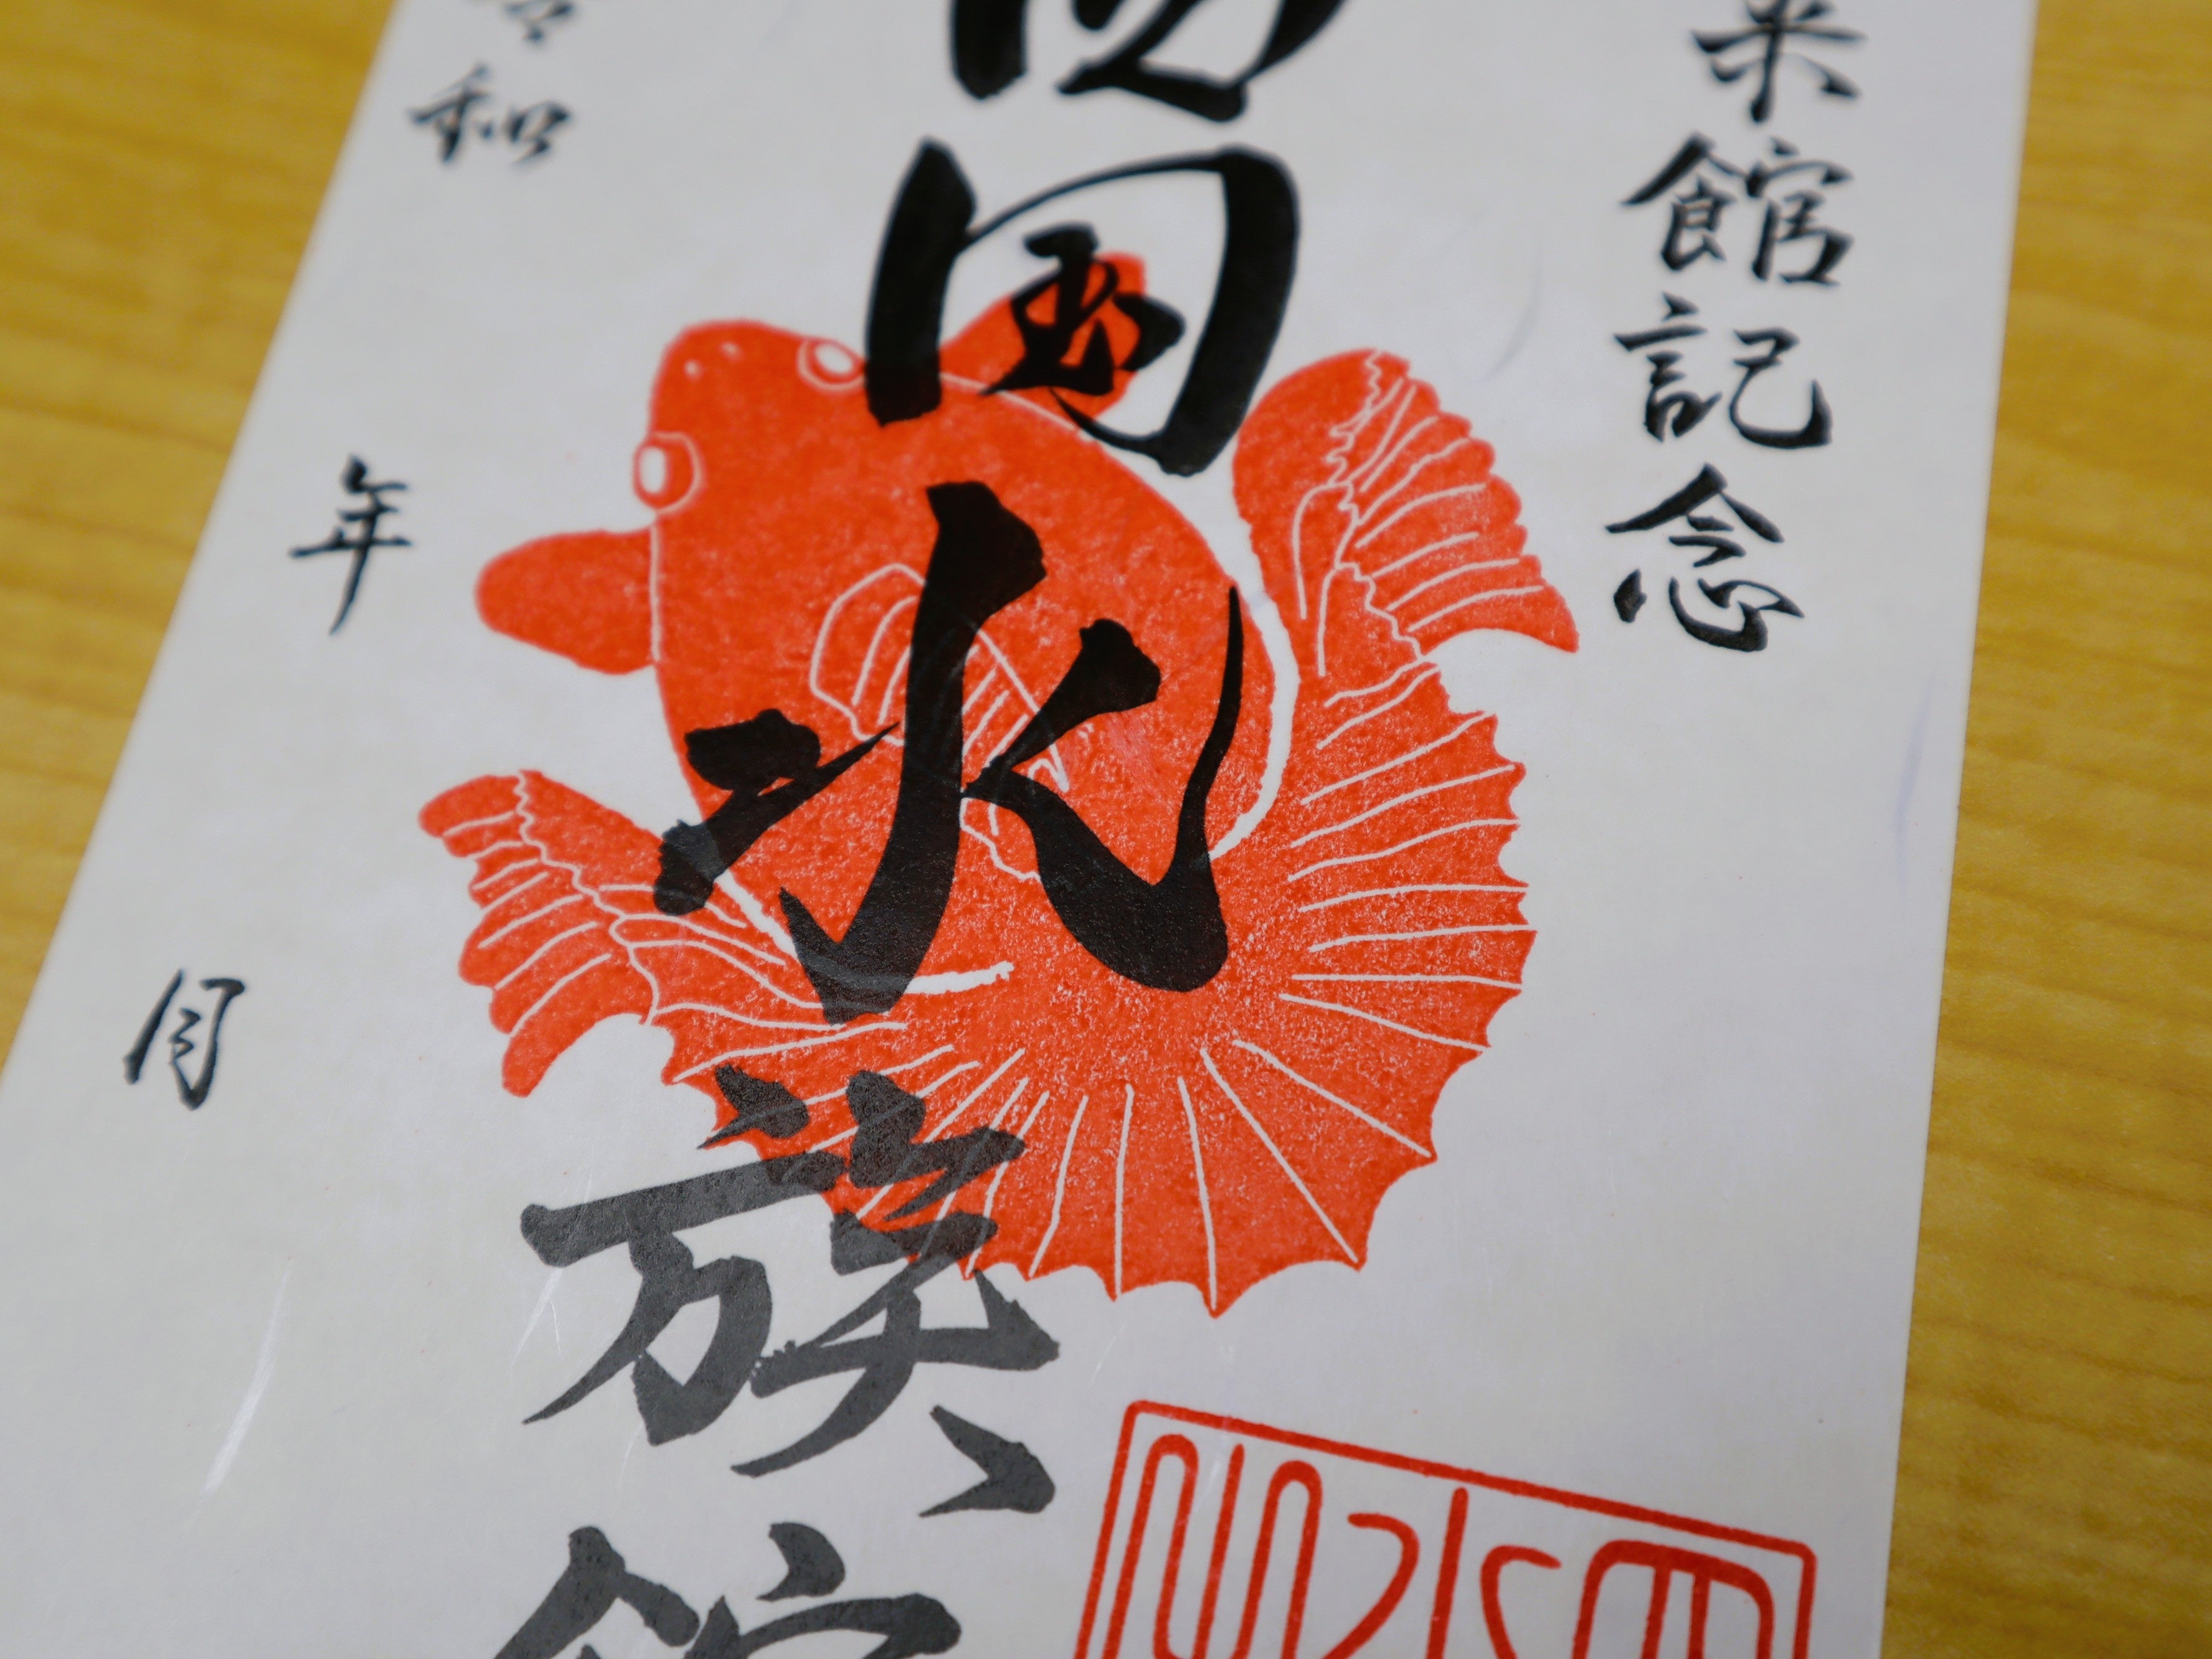 来館記念
四国水族館
令和 年 月